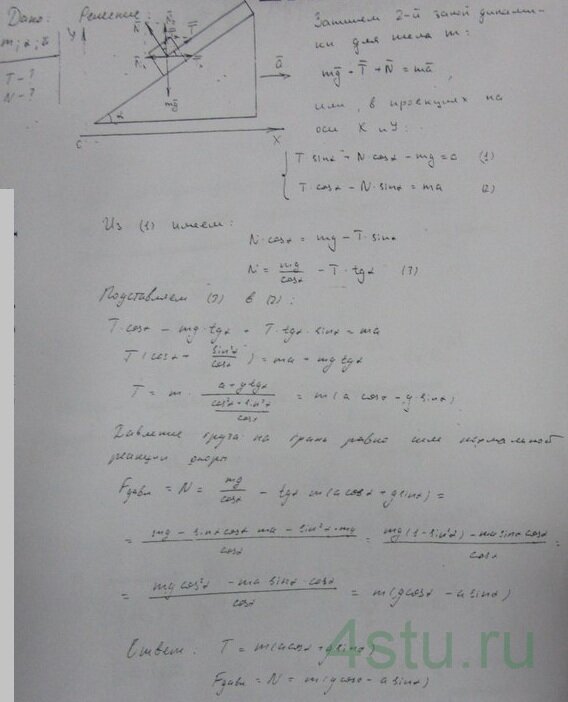 Дано:
m; α; a̅
T - ?
N - ?
Решение:
Y
N̅
N̅
T̅
mg̅
a̅
α
0
X
Запишем 2-й закон динами-
ки для тела m:
mg̅ + T̅ + N̅ = ma̅,
или, в проекциях на
оси X и Y:
T sinα + N cosα - mg = 0 (1)
T·cosα - N·sinα = ma (2)
Из (1) имеем:
N·cosα = mg - T·sinα
N = mg/cosα - T·tgα (3)
Подставляем (3) в (2):
T·cosα - mg·tgα + T·tgα·sinα = ma
T(cosα + sin²α/cosα) = ma + mg tgα
T = m · (a + g tgα)/((cos²α + sin²α)/cosα) = m(a cosα + g sinα)
Давление груза на грань равно силе нормальной
реакции опоры
Fдавл = N = mg/cosα - tgα m(a cosα + g sinα) =
= (mg - sinα cosα ma - sin²α·mg)/cosα = (mg(1 - sin²α) - ma sinα cosα)/cosα =
= (mg cos²α - ma sinα·cosα)/cosα = m(g cosα - a sinα)
Ответ: T = m(a cosα + g sinα)
Fдавл = N = m(g cosα - a sinα)
4stu.ru